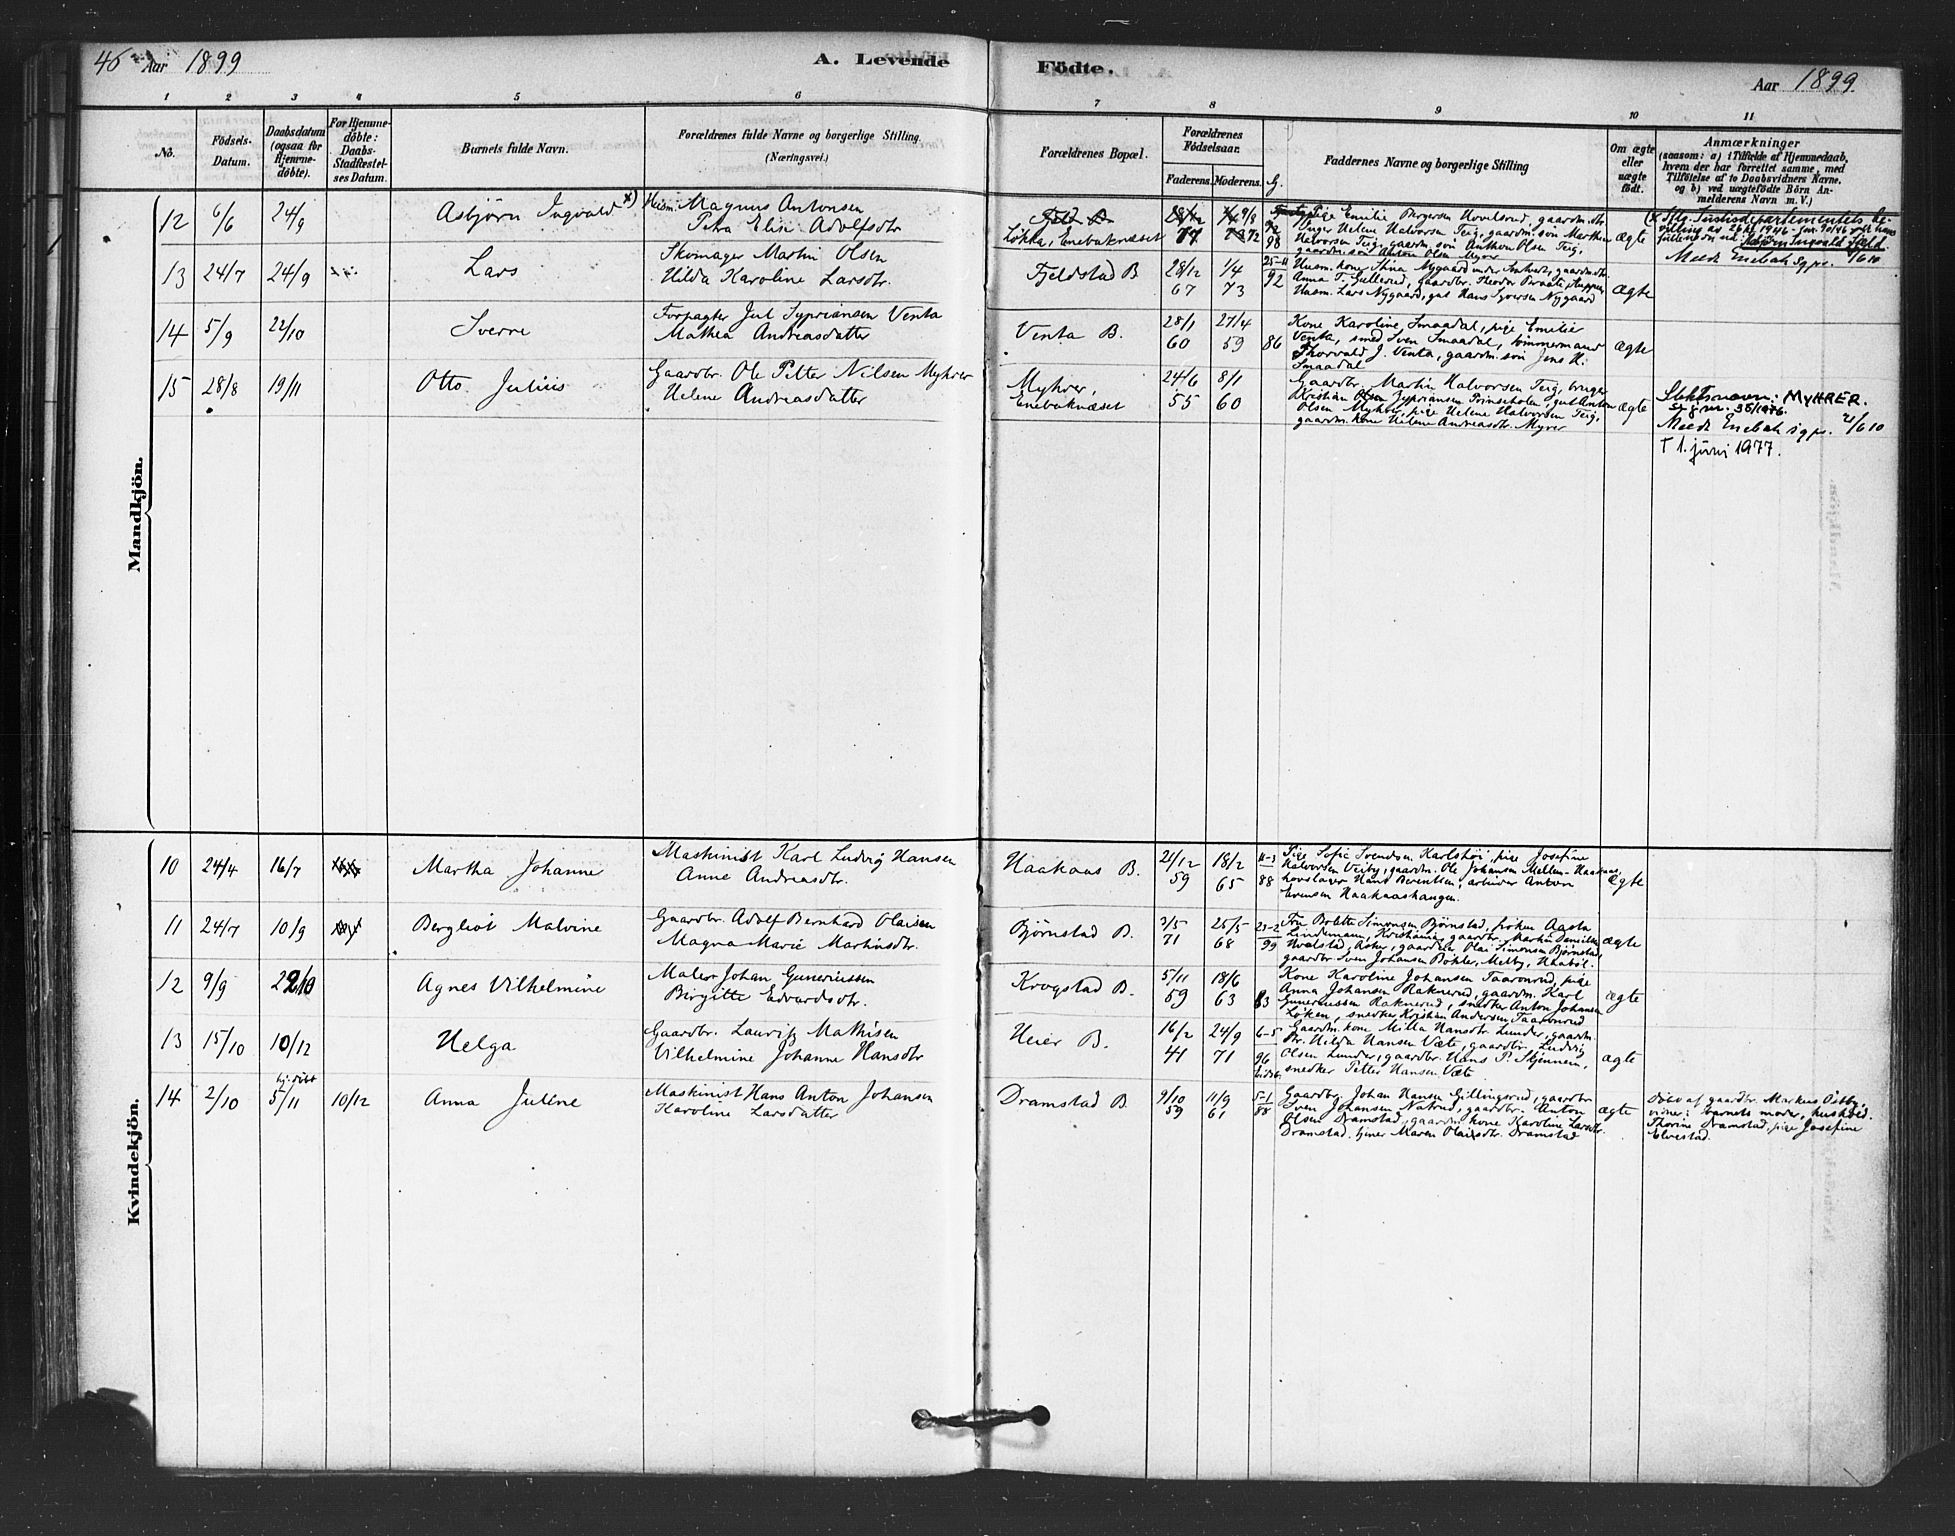 46 Aar 1899
A. Levende
Födte.
Aar 1899.
1 2 3 4 5 6
7 8 9 10 11
No.
Födsels-
Datum.
Daabsdatum
(ogsaa for
Hjemme-
döbte).
For Hjemme-
döbte:
Daabs-
Stadfæstel-
ses Datum.
Barnets fulde Navn.
Forældrenes fulde Navne og borgerlige Stilling.
(Næringsvei.)
Forældrenes Bopæl.
Forældrenes
Födselsaar.
Faderens. Moderens.
G.
Faddernes Navne og borgerlige Stilling
Om ægte
eller
uægte
födt.
Anmærkninger
(saasom: a) i Tilfælde af Hjemmedaab,
hvem der har forrettet samme, med
Tilföielse af to Daabsvidners Navne,
og b) ved uægtefödte Börn An-
melderens Navn m. V.)
Mandkjön.
12 6/6 24/9 Asbjörn Ingvald x)
Husm. Magnus Antonsen
Petra Elise Adolfsdtr
Løkka, Enebaknæset
77 72
98
Pige Emilie Bergersen Hovelsrud, gaardm. dtr
Inger Helene Halvorsen Teig, gaardm. søn Marthin
Halvorsen Teig, gaardm. søn Anthon Olsen Teig,
gaardm. søn Anton Olsen Myrer
ægte
Ifg. Justisdepartementets be-
Asbjörn Ingvald Fjeld
Meldt Enebak sgpr. 4/6 10
13 24/7 24/9 Lars
Skomager Martin Olsen
Hilda Karoline Larsdtr.
Fjeldstad B
28/12 1/4 25-11
67 73 92
Husm. kone Stina Nygaard under gaardm. dtr.
Anna T. Gullerud, gaardbr. Theodor Braate,
Husm. Lars Nygaard, gut Hans Syversen Nygaard
ægte
14 5/9 22/10 Sverre
Forpagter Jul Sypriansen Venta
Mathea Andreasdatter
Venta B.
28/1 27/4
60 59 86
Kone Karoline Smaadal, pige Emelie
Venta, smed Sven Smaadal, tömmermand
Thorvald J. Venta, gaardm. søn Jens H.
Smaadal
ægte
15 28/8 19/11 Otto Julius
Gaardbr. Ole Petter Nilsen Myhrer
Helene Andreasdatter
Myhrer,
Enebaknæset
24/6 8/1
55 60
Gaardbr. Martin Halvorsen Teig, bruger
Kristian Zypriansen Prinseholm, gut Anton
Olsen Myhrer, pige Helene Halvorsen Teig,
gaardm. kone Helene Andreasdtr. Myrer
ægte
Slektsnavn: MYHRER.
Meldt Enebak sgpr. 21/6 10
† 1. juni 1977.
Kvindekjön.
10 24/4 16/7 Martha Johanne
Maskinist Karl Ludvig Hansen
Anne Andreasdtr.
Haakaas B.
21/12 18/2 11-3
59 65 88
Pige Sofie Svendsen Karlshöi, pige Josefine
Halvorsen Veiby, gaardm. Ole Johansen Mellem-Haakaas,
hovslager Hans Berentsen, arbeider Anton
Evensen Haakaashaugen.
ægte
11 24/7 10/9 Bergliot Malvine
Gaardbr. Adolf Bernhard Olaisen
Magna Marie Martinsdtr.
Bjørnstad B.
3/5 25/5 23-2
71 68 99
Fru Bolette Simonsen Bjørnstad, frøken Aasta
Lindemann, Kristiania, gaardbr. Martin Danielsen
Hvalstad, Asker, gaardm. Olai Simonsen Bjørnstad,
gaardbr. Sven Johansen Böhler, Melby, Haabøl.
ægte
12 9/9 22/10 Agnes Vilhelmine
Maler Johan Guneriussen
Birgitte Edvardsdtr.
Krogstad B.
5/11 18/6
59 63 83
Kone Karoline Johansen Taaronrud, pige
Anna Johansen Raknerud, gaardm. Karl
Guneriussen Raknerud, snedker Anton Johansen
Løken, snedker Kristian Andersen Taaronrud
ægte
13 15/10 10/12 Helga
Gaardbr. Lauritz Mathisen
Vilhelmine Johanne Hansdtr
Heier B.
16/2 24/9 6-5
41 71 96
Gaardm. kone Milla Hansdtr. Lunder, gaardm.
dtr. Hilda Hansen Væte, gaardbr. Ludvig
Olsen Lunder, gaardbr. Hans P. Skjennem,
snedker Petter Hansen Væte
ægte
14 2/10 hj. döbt 5/11 10/12 Anna Juline
Maskinist Hans Anton Johansen
Karoline Larsdatter
Dramstad B.
9/10 11/9 5-1
59 61 88
Gaardbr. Johan Hansen Gillingsrud, gaardbr
Sven Johansen Natrud, gaardbr. Anton
Olsen Dramstad, gaardm. kone Karoline Larsdtr.
Dramstad, tjener Maren Olaisdtr. Dramstad
ægte
Döbt af gaardbr. Markus Østby,
vidner: barnets moder, husholdr.
Thorine Dramstad, pige Josefine
Elvestad.